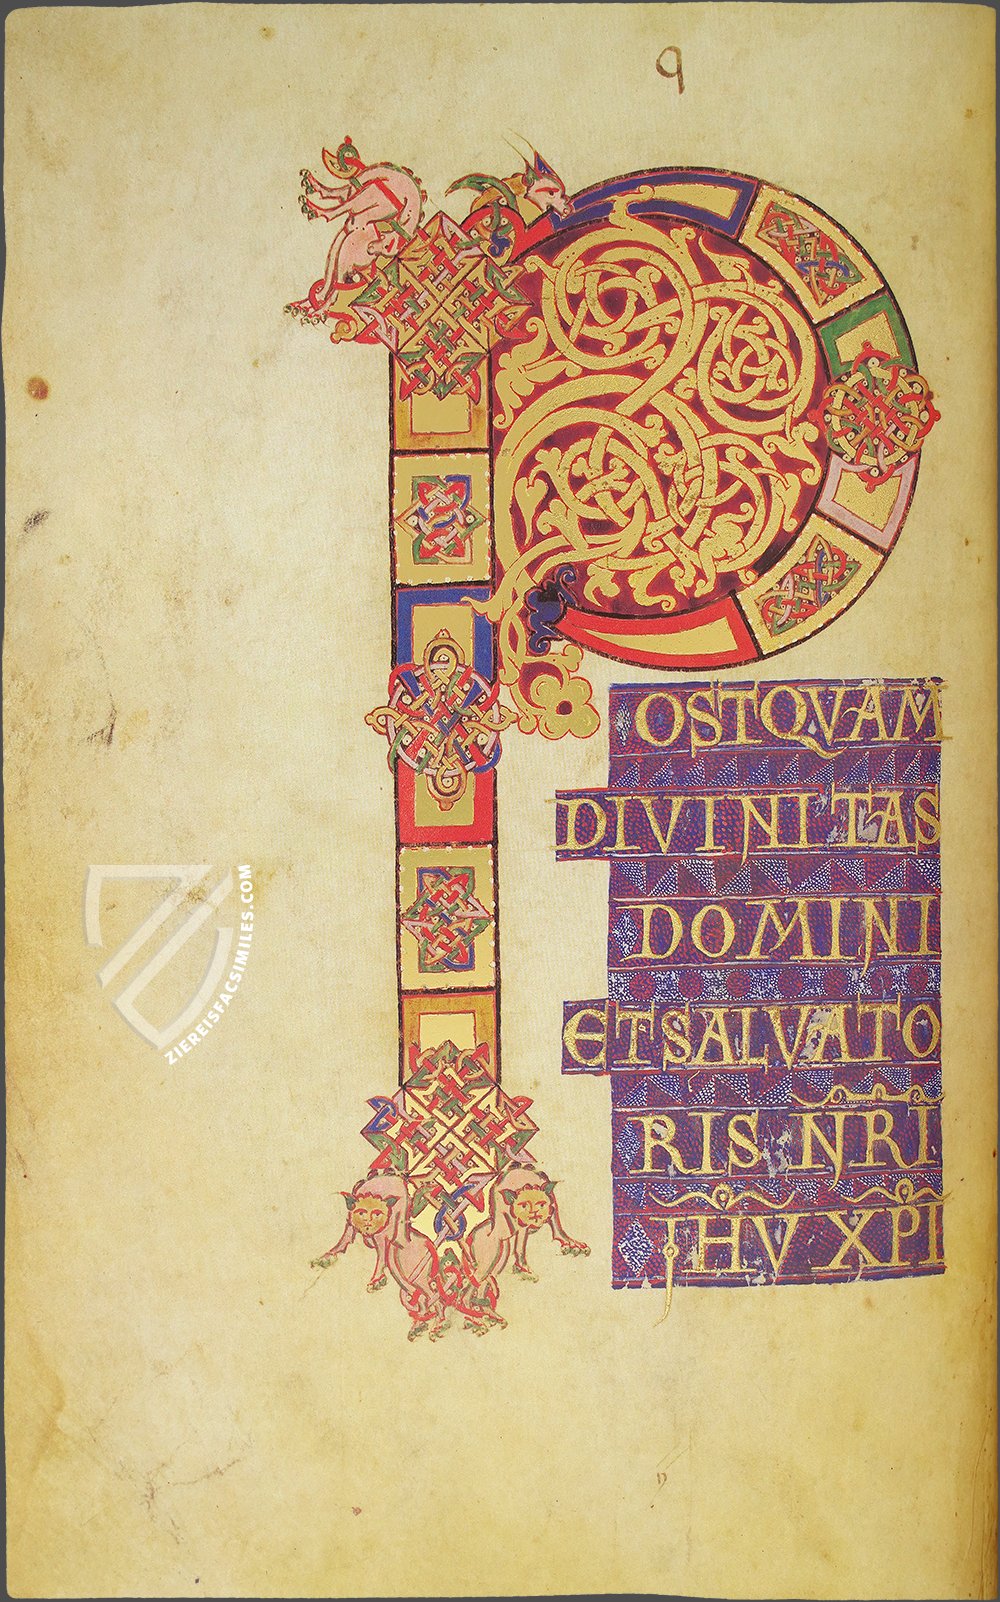 9
POSTQVAM
DIVINITAS
DOMINI
ETSALVATO
RIS NRI
IHV XPI
ZIEREISFACSIMILES.COM